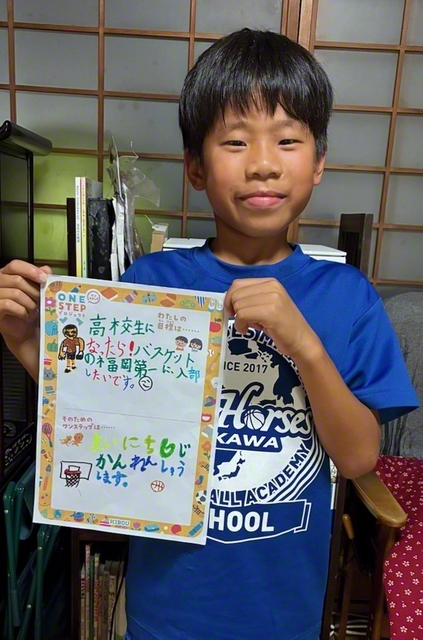 ONE
STEP
プロジェクト
わたしの
目標は……
高校生に
なったら!バスケット
の福岡第一に入部
したいです。
そのための
ワンステップは……
まいにち6じ
かんれんしゅう
します。
SINCE 2017
Horses
KAWA
BALL ACADEMY
SCHOOL